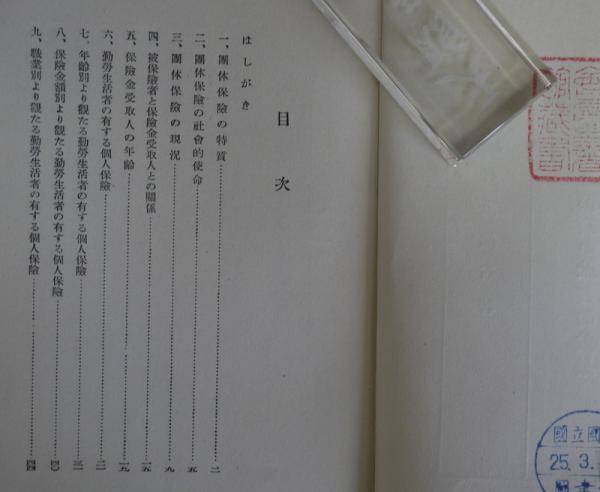 目次
はしがき
一、團体保險の特質……二
二、團体保險の社會的使命……五
三、團体保險の現況……九
四、被保險者と保險金受取人との關係……一五
五、保險金受取人の年齡……一九
六、勤勞生活者の有する個人保險……二一
七、年齡別より觀たる勤勞生活者の有する個人保險……三一
八、保險金額別より觀たる勤勞生活者の有する個人保險
九、職業別より觀たる勤勞生活者の有する個人保險
藏書
國立國
25.3.
圖書